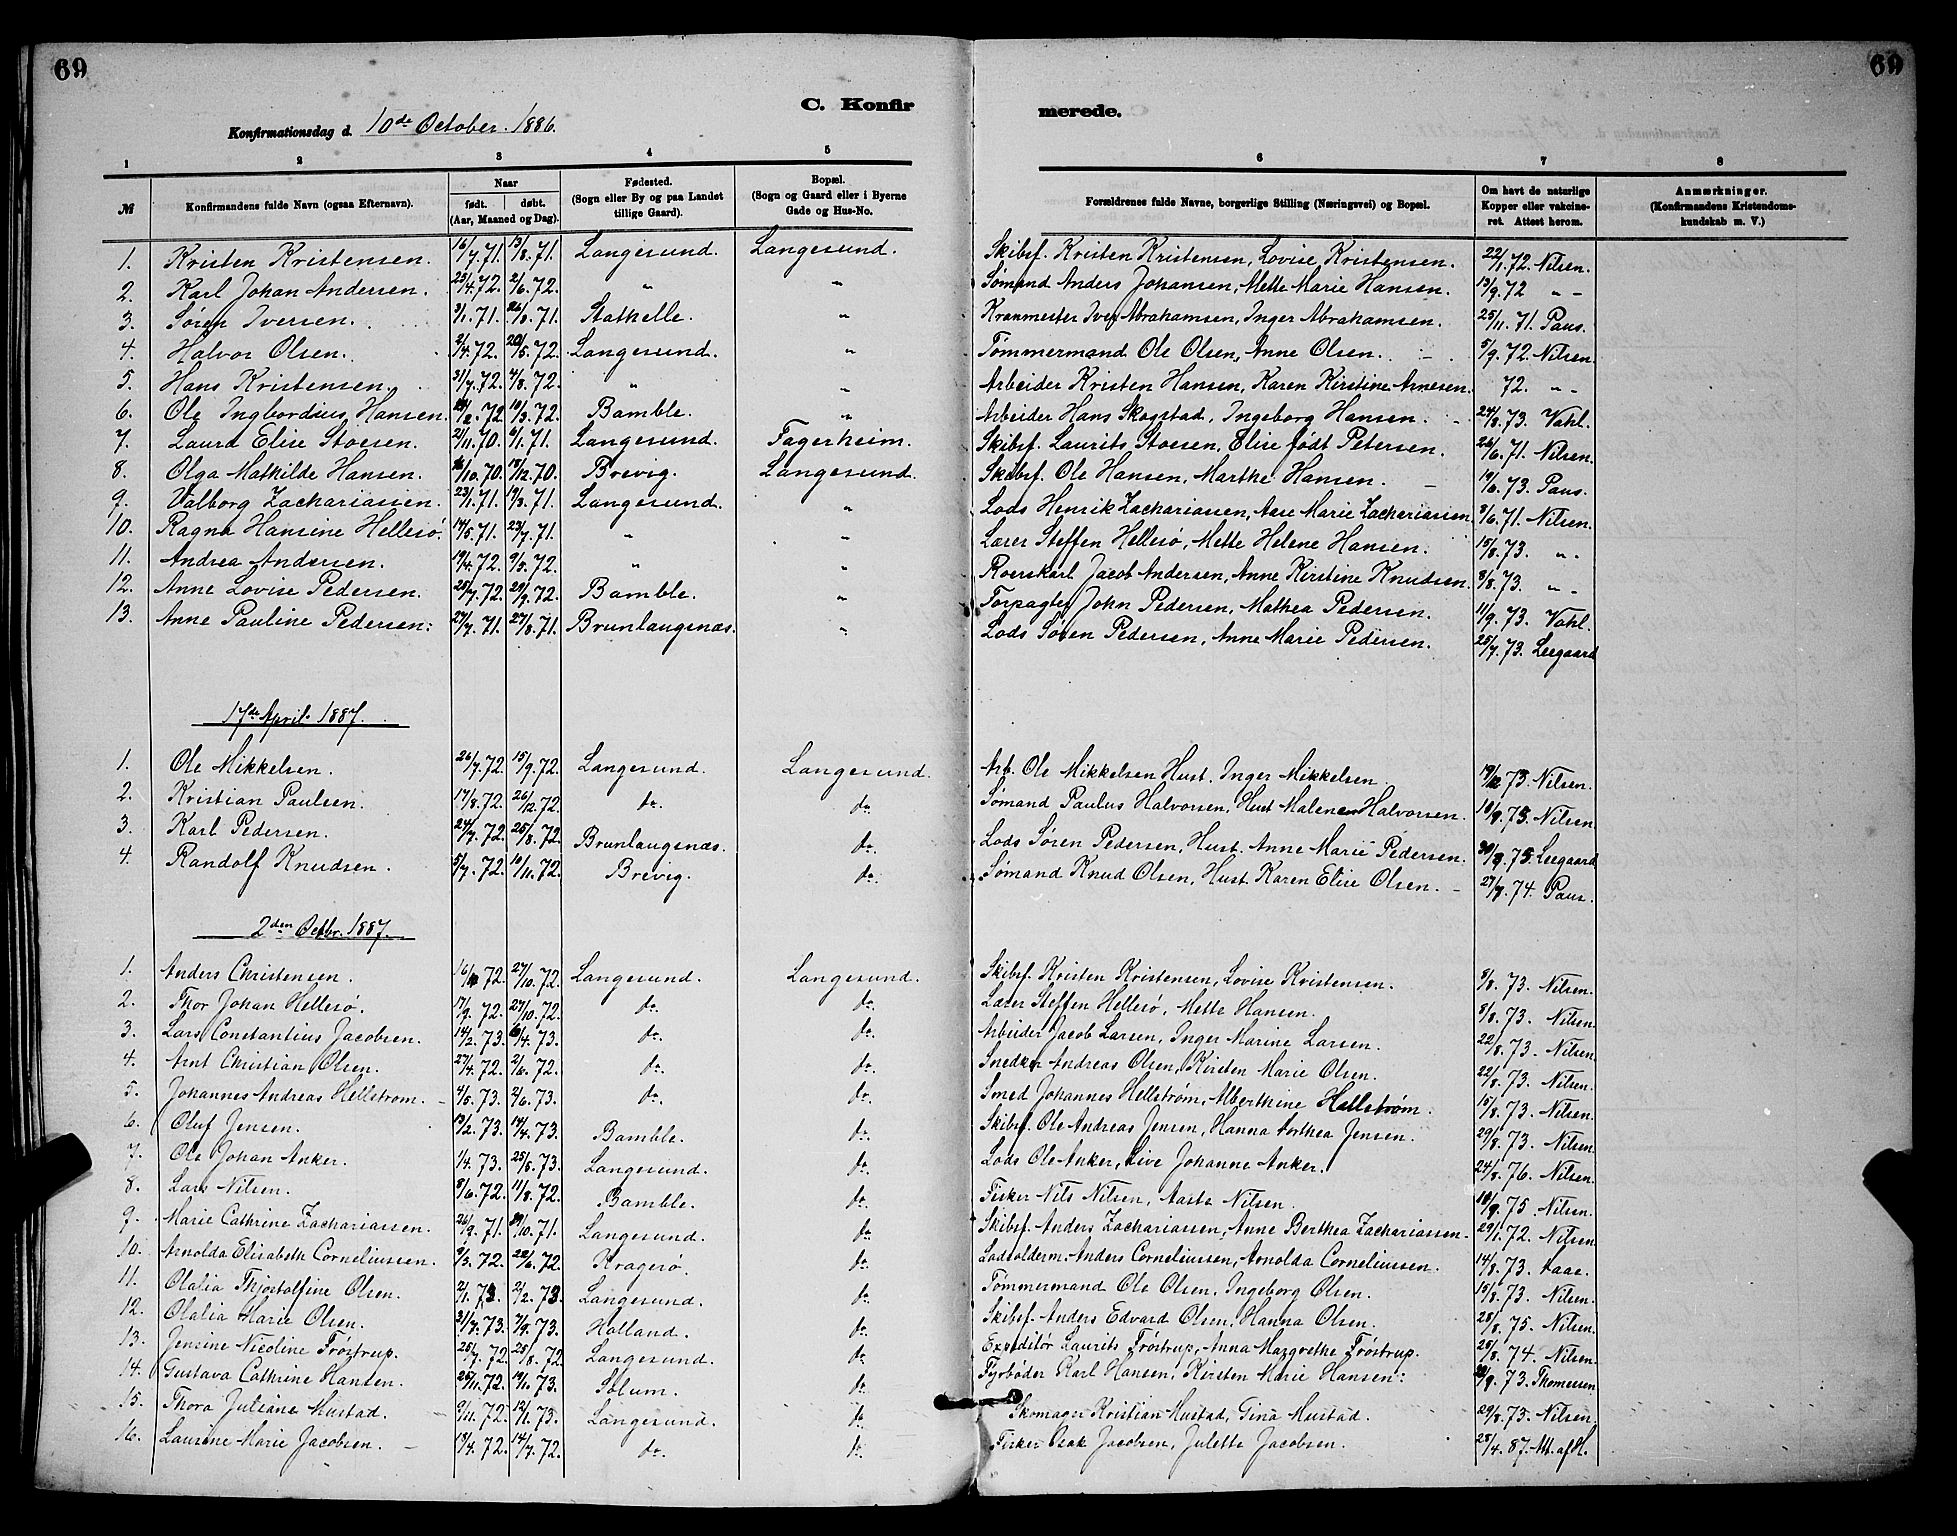 69
69
C. Konfir
merede.
Konfirmationsdag d. 10de October. 1886.
1 2 3 4 5 6 7 8
№ Konfirmandens fulde Navn (ogsaa Efternavn). Naar født. døbt. (Aar, Maaned og Dag). Fødested. (Sogn eller By og paa Landet tillige Gaard). Bopæl. (Sogn og Gaard eller i Byerne Gade og Hus-No. Forældrenes fulde Navne, borgerlige Stilling (Næringsvei) og Bopæl. Om havt de naturlige Kopper eller vakcineret. Attest herom. Anmærkninger. (Konfirmandens Kristendomskundskab m. V.)
1. Kristen Kristensen. 16/7.71. 13/8.71. Langesund. Langesund. Skibsf. Kristen Kristensen, Lovise Kristensen. 22/1.72. Nilsen.
2. Karl Johan Andersen. 25/4.72. 2/6.72. „ „ Sømand Anders Johansen, Mette Marie Hansen. 13/9.72 „ -
3. Søren Iversen. 3/1.71. 26/8.71. Stathelle. „ Kranmester Iver Abrahamsen, Inger Abrahamsen. 25/11.71. Paus.
4. Halvor Olsen. 2/4.72. 20/5.72. Langesund. „ Tømmermand Ole Olsen, Anne Olsen. 5/9.72. Nilsen.
5. Hans Kristensen. 31/7.72. 4/8.72. „ „ Arbeider Kristen Hansen, Karen Kirstine Arnesen. 72. „ -
6. Ole Ingbordius Hansen. /2.72. 10/3.72. Bamble. „ Arbeider Hans Skogstad, Ingeborg Hansen. 24/8.73. Vahl.
7. Laura Elise Stoesen. 21/11.70. 6/1.71. Langesund. Fagerheim. Skibsf. Laurits Stoesen, Elise født Petersen. 26/6.71. Nilsen.
8. Olga Mathilde Hansen. 16/10.70. 18/12.70. Brevig. Langesund. Skibsf. Ole Hansen, Marthe Hansen. 19/6.73. Paus.
9. Valborg Zachariassen. 23/1.71. 19/3.71. Langesund. „ Lods Henrik Zachariassen, Aase Marie Zachariassen 8/6.71. Nilsen.
10. Ragna Hansine Hellesø. 14/5.71. 23/7.71. „ „ Lærer Steffen Hellesø, Mette Helene Hansen. 15/8.73. „ .
11. Andrea Andersen. 19/4.72. 9/5.72. „ „ Roerskarl Jacob Andersen, Anne Kirstine Knudsen. 8/8.73. „ -
12. Anne Lovise Pedersen. 25/7.72. 29/9.72. Bamble. „ Forpagter John Pedersen, Mathea Pedersen. 11/9.73. Vahl.
13. Anne Pauline Pedersen: 27/7.71. 27/8.71. Brunlaugenæs. „ Lods Søren Pedersen, Anne Marie Pedersen. 25/7.73. Leegaard
17de April. 1887.
1. Ole Mikkelsen. 26/7.72. 15/9.72. Langesund. Langesund. Arb. Ole Mikkelsen Hust. Inger Mikkelsen. 19/12.73. Nilsen.
2. Kristian Paulsen. 17/8.72. 26/12.72. do. do. Sømand Paulus Halvorsen, Hust Malene Halvorsen. 18/9.75. Nilsen
3. Karl Pedersen. 24/7.72. 25/8.72. Brunlaugenæs. do. Lods Søren Pedersen, Hust. Anne Marie Pedersen. 30/9.75. Leegaard
4. Randolf Knudsen. 5/7.72. 10/11.72. Brevig. do. Sømand Knud Olsen, Hust. Karen Elise Olsen. 27/7.74. Paus.
2den Octbr. 1887.
1. Anders Christensen. 16/ 72. 27/10.72. Langesund. Langesund. Skibsf. Kristen Kristensen, Lovise Kristensen. 5/8.73. Nilsen.
2. Thor Johan Hellesø. 17/9.72. 27/10.72. do. do. Lærer Steffen Hellesø, Mette Hansen. 8/8.73. Nilsen.
3. Lars Constantius Jacobsen. 14/2.73. 6/4.73. do. do. Arbeider Jacob Larsen, Inger Marine Larsen. 22/8.73. Nilsen.
4. Arnt Christian Olsen. 27/4.72. 2/6.72. do. do. Snedker Andreas Olsen, Kirsten Marie Olsen. 22/8.73. Nilsen.
5. Johannes Andreas Hellstrom. 4/5.73. 2/6.73. do. do. Smed Johannes Hellstrøm, Alberthine Hellstrøm. 15/8.73. Nilsen.
6. Oluf Jensen. 13/2.73. 14/4.73. Bamble. do. Skibsf. Ole Andreas Jensen, Hanna Dorthea Jensen. 29/8.73. Nilsen.
7. Ole Johan Anker. 1/4.73. 25/5.73. Langesund. do. Lods Ole Anker, Live Johanne Anker. 24/8.76. Nilsen.
8. Lars Nilsen. 8/6.72. 11/8.72. Bamble. do. Fisker Nils Nilsen, Aaste Nilsen. 18/9.75. Nilsen.
9. Marie Cathrine Zachariassen. 26/9.71. 29/10.71. Langesund. do. Skibsf. Anders Zachariassen, Anne Berthea Zachariassen. 29/1.72. Nilsen
10. Arnolda Elisabeth Corneliussen. 9/3.72. 22/6.72. Kragerø. do. Lodsolderm. Anders Corneliussen, Arnolda Corneliussen. 14/8.73. Aaas.
11. Olalia Thjostolfine Olsen. 2/1.73. 2/2.73. Langesund. do. Tømmermand Ole Olsen, Ingeborg Olsen. 15/8.73. Nilsen.
12. Olalia Marie Olsen. 31/7.73. 7/9.73. Holland. do. Skibsf. Anders Edvard Olsen, Hanna Olsen. 25/8.75. Nilsen.
13. Jensine Nicoline Frøstrup. 25/7.72. 25/8.72. Langesund. do. Expeditør Laurits Frøstrup, Anna Margrethe Frøstrup. 25/8.74. Nilsen.
14. Gustava Cathrine Hansen. 25/11.72. 19/1.73. Solum. do. Fyrbøder Karl Hansen, Kirsten Marie Hansen: 20/9.73. Thomessen
15. Thora Juliane Mustad. 9/11.72. 12/1.73. Langesund. do Skomager Kristian Mustad, Gina Mustad. 29/8.73. Nilsen.
16. Laurine Marie Jacobsen. 13/4.72. 14/7.72. do. do. Fisker Isak Jacobsen, Julette Jacobsen. 25/4.87. Att. af H.